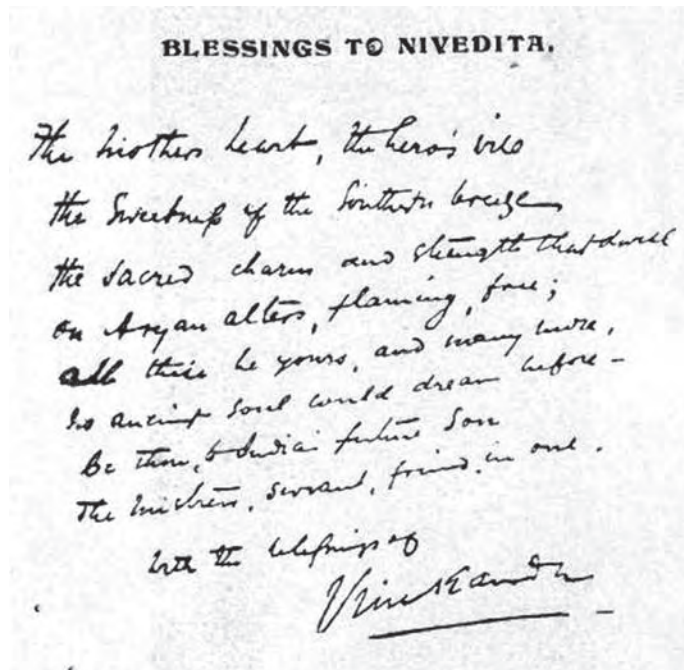 BLESSINGS TO NIVEDITA.
The mothers heart, the hero's will
the Sweetness of the Southern breeze
the sacred charm and strength that dwell
on Aryan alters, flaming, free;
all these be yours, and many more,
No ancient soul could dream before –
Be thou, to India's future Son
The mistress, servant, friend, in one.
With the blessings of
Vivekananda